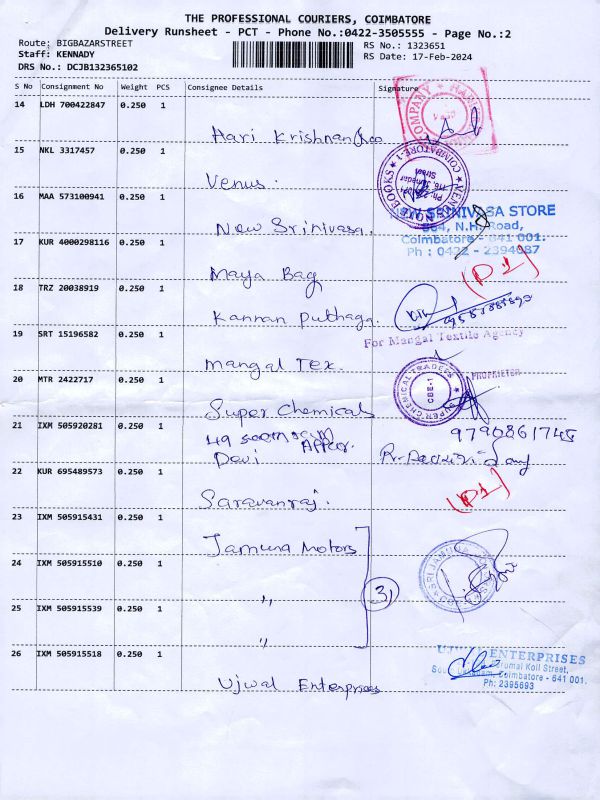 THE PROFESSIONAL COURIERS, COIMBATORE
Delivery Runsheet - PCT - Phone No.:0422-3505555 - Page No.:2
Route: BIGBAZARSTREET
RS No.: 1323651
Staff: KENNADY
RS Date: 17-Feb-2024
DRS No.: DCJB132365102
S No Consignment No Weight PCS Consignee Details Signature
14 LDH 700422847 0.250 1
Hari Krishnan & co
15 NKL 3317457 0.250 1
Venus.
16 MAA 573100941 0.250 1
New Srinivasa.
SRINIVASA STORE
N.H. Road,
Coimbatore - 641 001.
Ph : 0422 - 2394087
17 KUR 4000298116 0.250 1
Maya Bag
(P1)
18 TRZ 20038919 0.250 1
Kannan Puthaga.
19 SRT 15196582 0.250 1
For Mangal Textile Agency
Mangal Tex.
PROPRIETER
20 MTR 2422717 0.250 1
Super Chemicals
SUPER CHEMICAL TRADERS
CBE-1
21 IXM 505920281 0.250 1
49
Devi
9790861745
22 KUR 695489573 0.250 1
Saravanraj.
(P1)
23 IXM 505915431 0.250 1
Jamuna Motors
24 IXM 505915510 0.250 1
"
3
25 IXM 505915539 0.250 1
"
26 IXM 505915518 0.250 1
Ujwal Enterprises
ENTERPRISES
Perumal Koil Street,
Coimbatore - 641 001.
Ph: 2395693